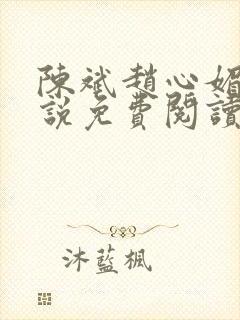 陳斌趙心媚
說免費閱讀
沐藍楓